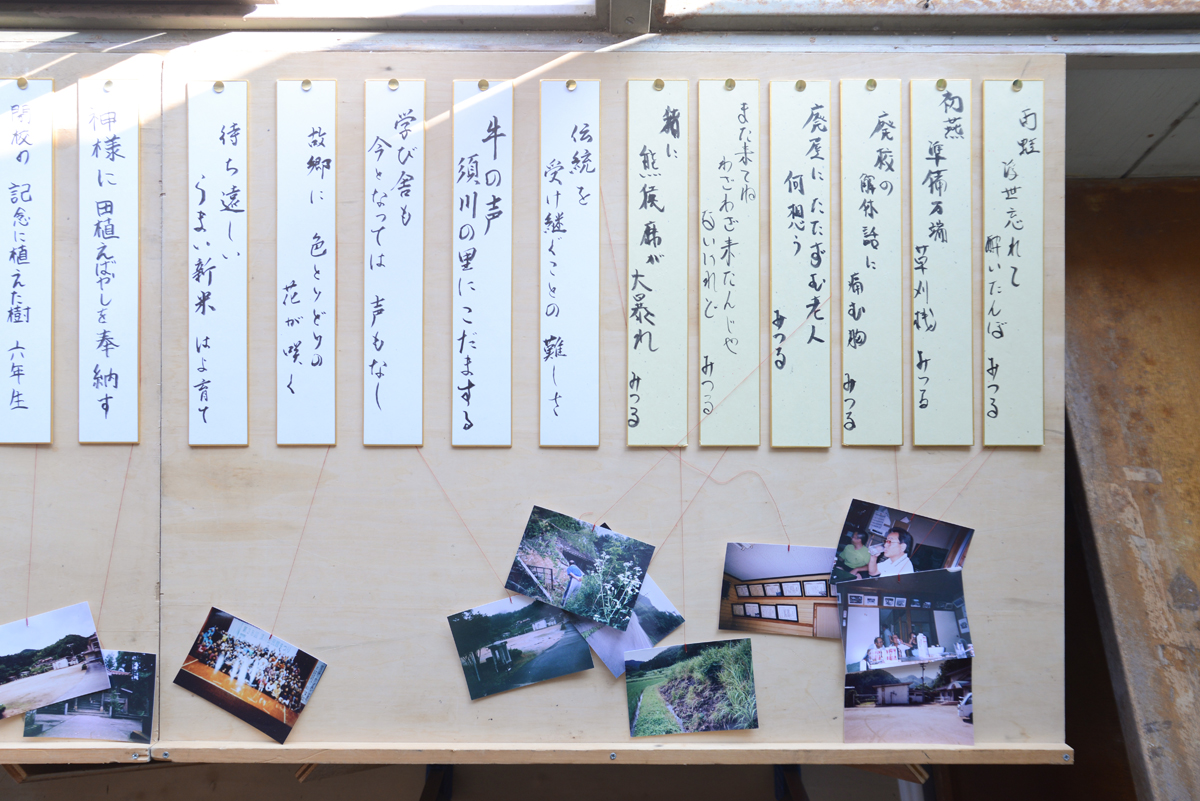 雨蛙
浮世忘れて
酔いたんぼ みつる
初燕
準備万端
草刈機 みつる
廃校の
解体話に
痛む胸 みつる
廃屋にたたずむ老人
何想う
みつる
また来てね
わざわざ来たんじゃ
ないけれど みつる
猪に
熊猿鹿が
大暴れ みつる
伝統を
受け継ぐことの 難しさ
牛の声
須川の里にこだまする
学び舎も
今となっては 声もなし
故郷に 色とりどりの
花が咲く
待ち遠しい
うまい新米 はよ育て
神様に 田植えばやしを 奉納す
閉校の 記念に植えた樹 六年生